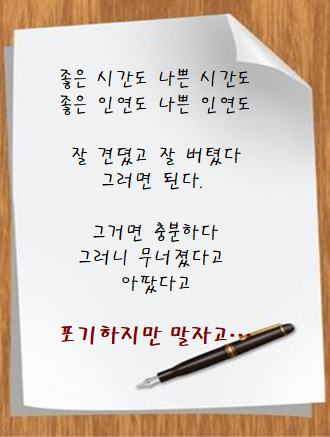 좋은 시간도 나쁜 시간도
좋은 인연도 나쁜 인연도
잘 견뎠고 잘 버텼다
그러면 된다.
그거면 충분하다
그러니 무너졌다고
아팠다고
포기하지만 말자고...